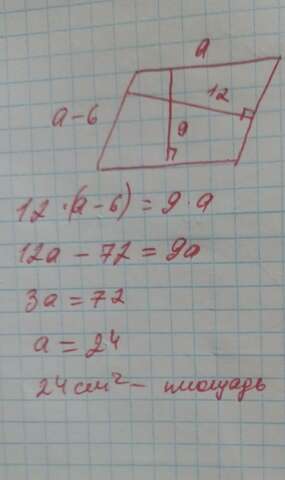 a
a-6
12
9
12·(a-6)=9·a
12a-72=9a
3a=72
a=24
24 см² - площадь